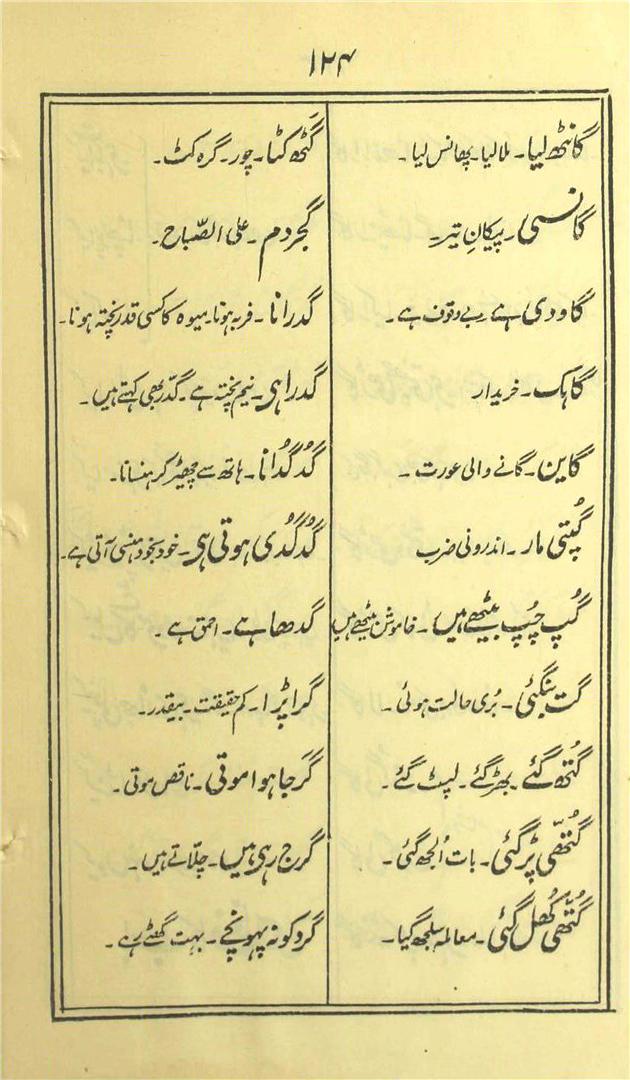 ۱۲۴
گانٹھ لیا۔ ملا لیا۔ پھانس لیا۔
گانسی۔ پیکانِ تیر۔
گاودی ہے۔ بے وقوف ہے۔
گاہک۔ خریدار
گاین۔ گانے والی عورت۔
گُپتی مار۔ اندرونی ضرب
گُپ چُپ بیٹھے ہیں۔ خاموش بیٹھے ہیں
گت بنگئی۔ بُری حالت ہوئی۔
گُتھ گئے۔ بھڑ گئے۔ لپٹ گئے۔
گُتھّی پڑ گئی۔ بات اُلجھ گئی۔
گُتھّی کھُل گئی۔ معاملہ سلجھ گیا۔
گَٹھ کٹا۔ چور۔ گرہ کٹ۔
گجردم۔ علی الصّباح۔
گدرانا۔ فربہ ہونا۔ میوہ کا کسی قدر پختہ ہونا۔
گدرا ہی۔ نیم پختہ ہے۔ گدّر بھی کہتے ہیں۔
گُدگُدانا۔ ہاتھ سے چھیڑ کر ہنسانا۔
گُدگُدی ہوتی ہی۔ خود بخود ہنسی آتی ہے۔
گدھا ہے۔ احمق ہے۔
گرا پڑا۔ کم حقیقت۔ بیقدر۔
گَرجا ہوا موتی۔ ناقص موتی۔
گرج رہی ہیں۔ چلّاتے ہیں۔
گرد کو نہ پہونچے۔ بہت گھٹے رہے۔